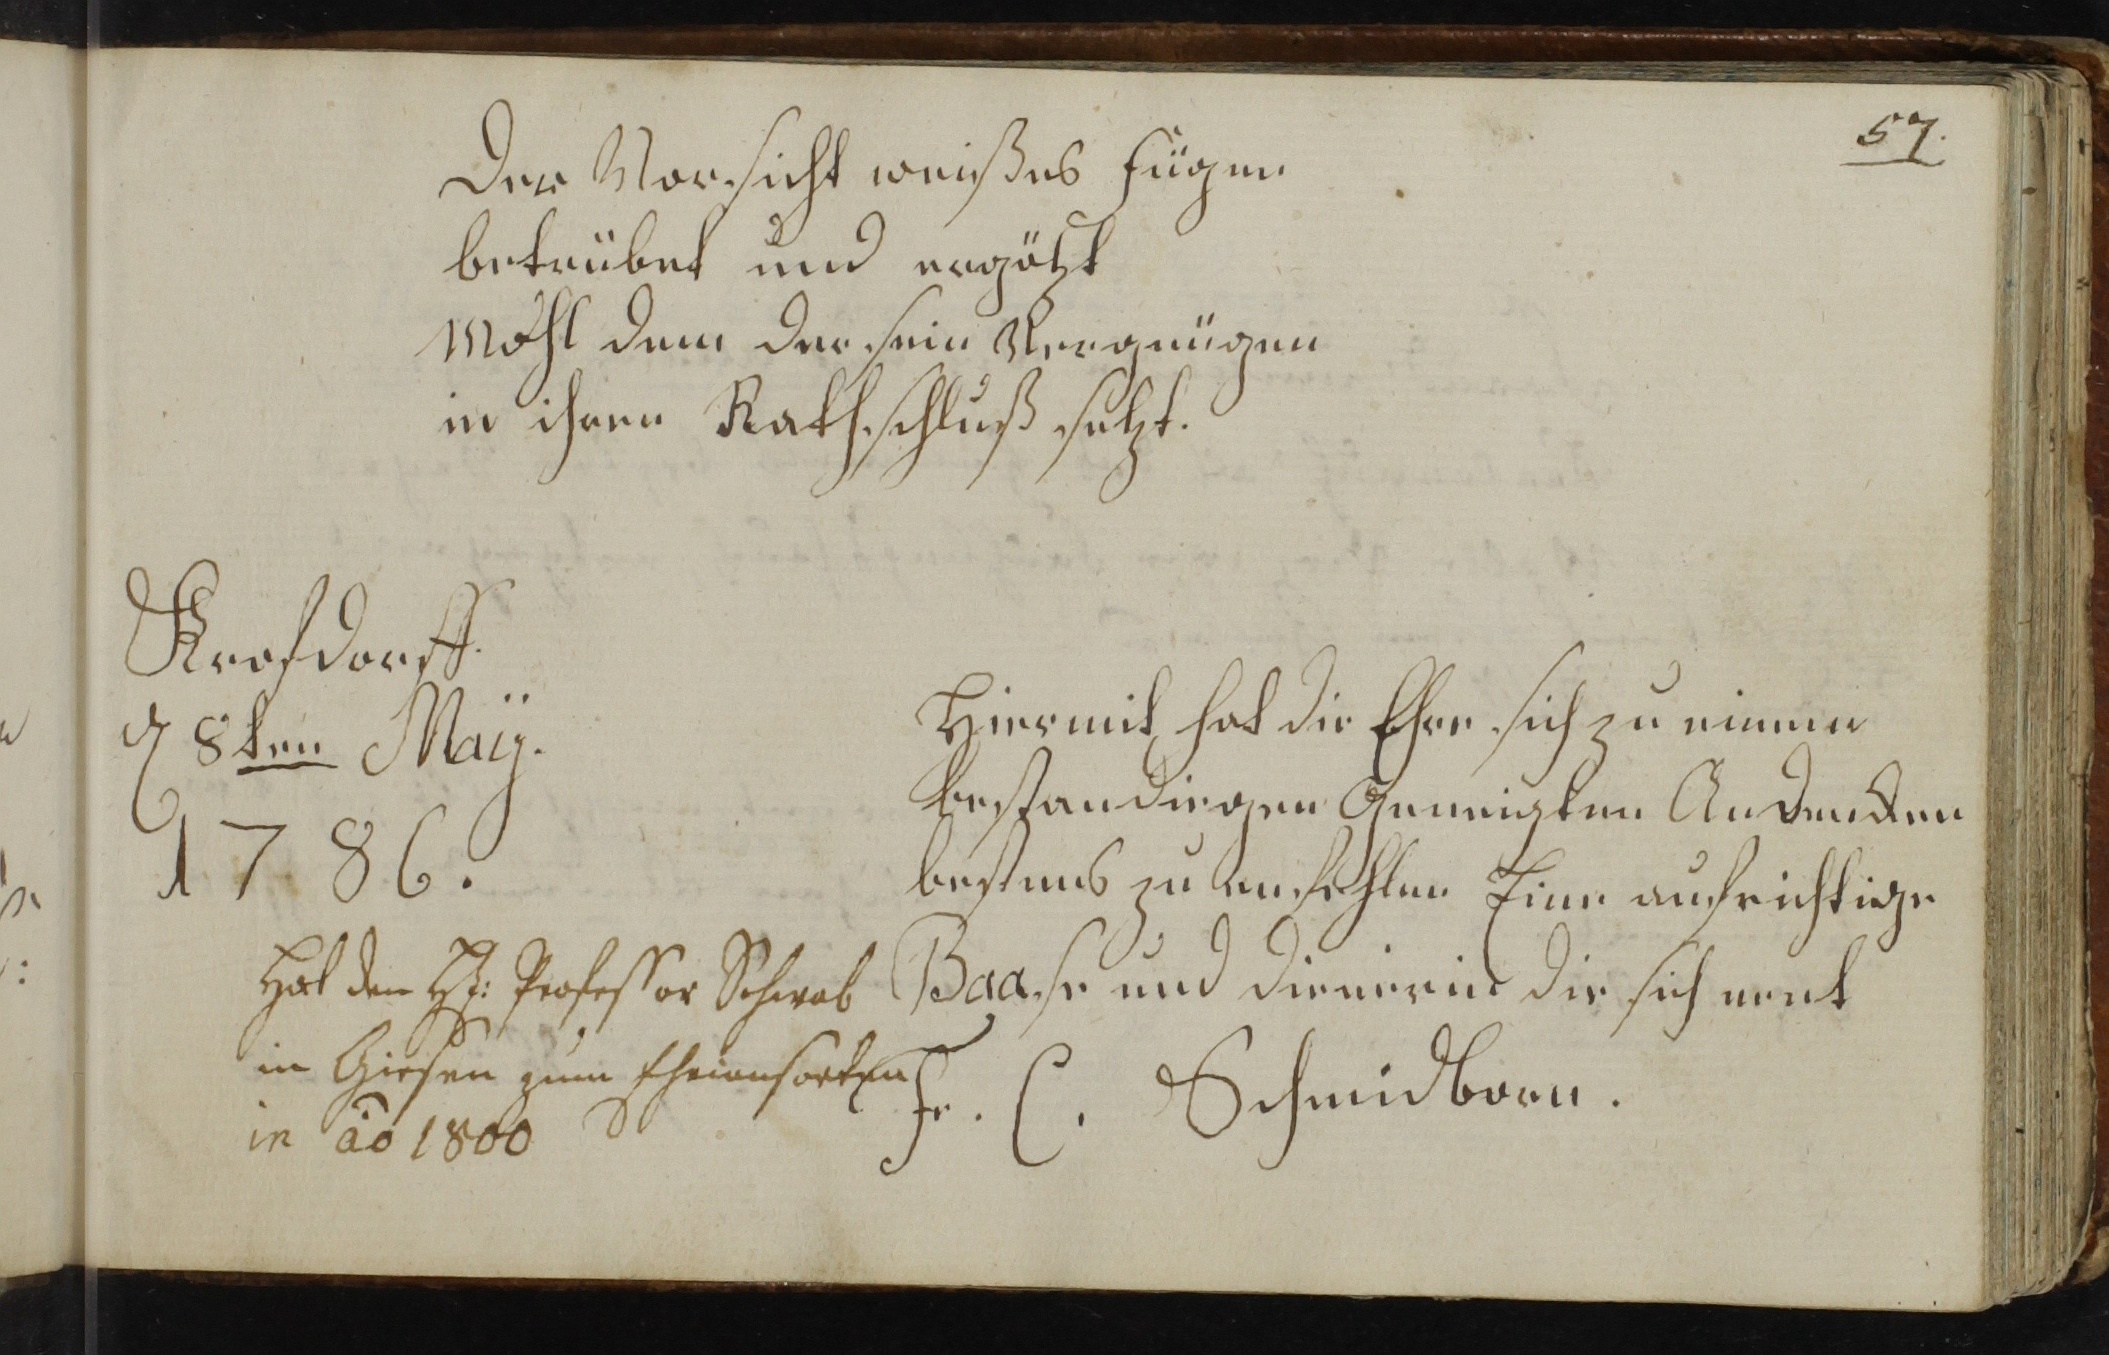 57.
Der Vorsicht weißes fügen
betrübet und ergötzt
Wohl dem der sein Vergnügen
in ihren Rathschluß setzt.
Krofdorff.
d 8ten Maÿ.
1786.
Hiermit hat die Ehre sich zu einem
bestandiegen Geneigten Andencken
bestens zu emfehlen Eine aufrichtige
Baase und dienerin die sich nent
Fr. C. Schmidborn.
Hat den H: Professor Schwab
in Giesen zum
in ao 1800